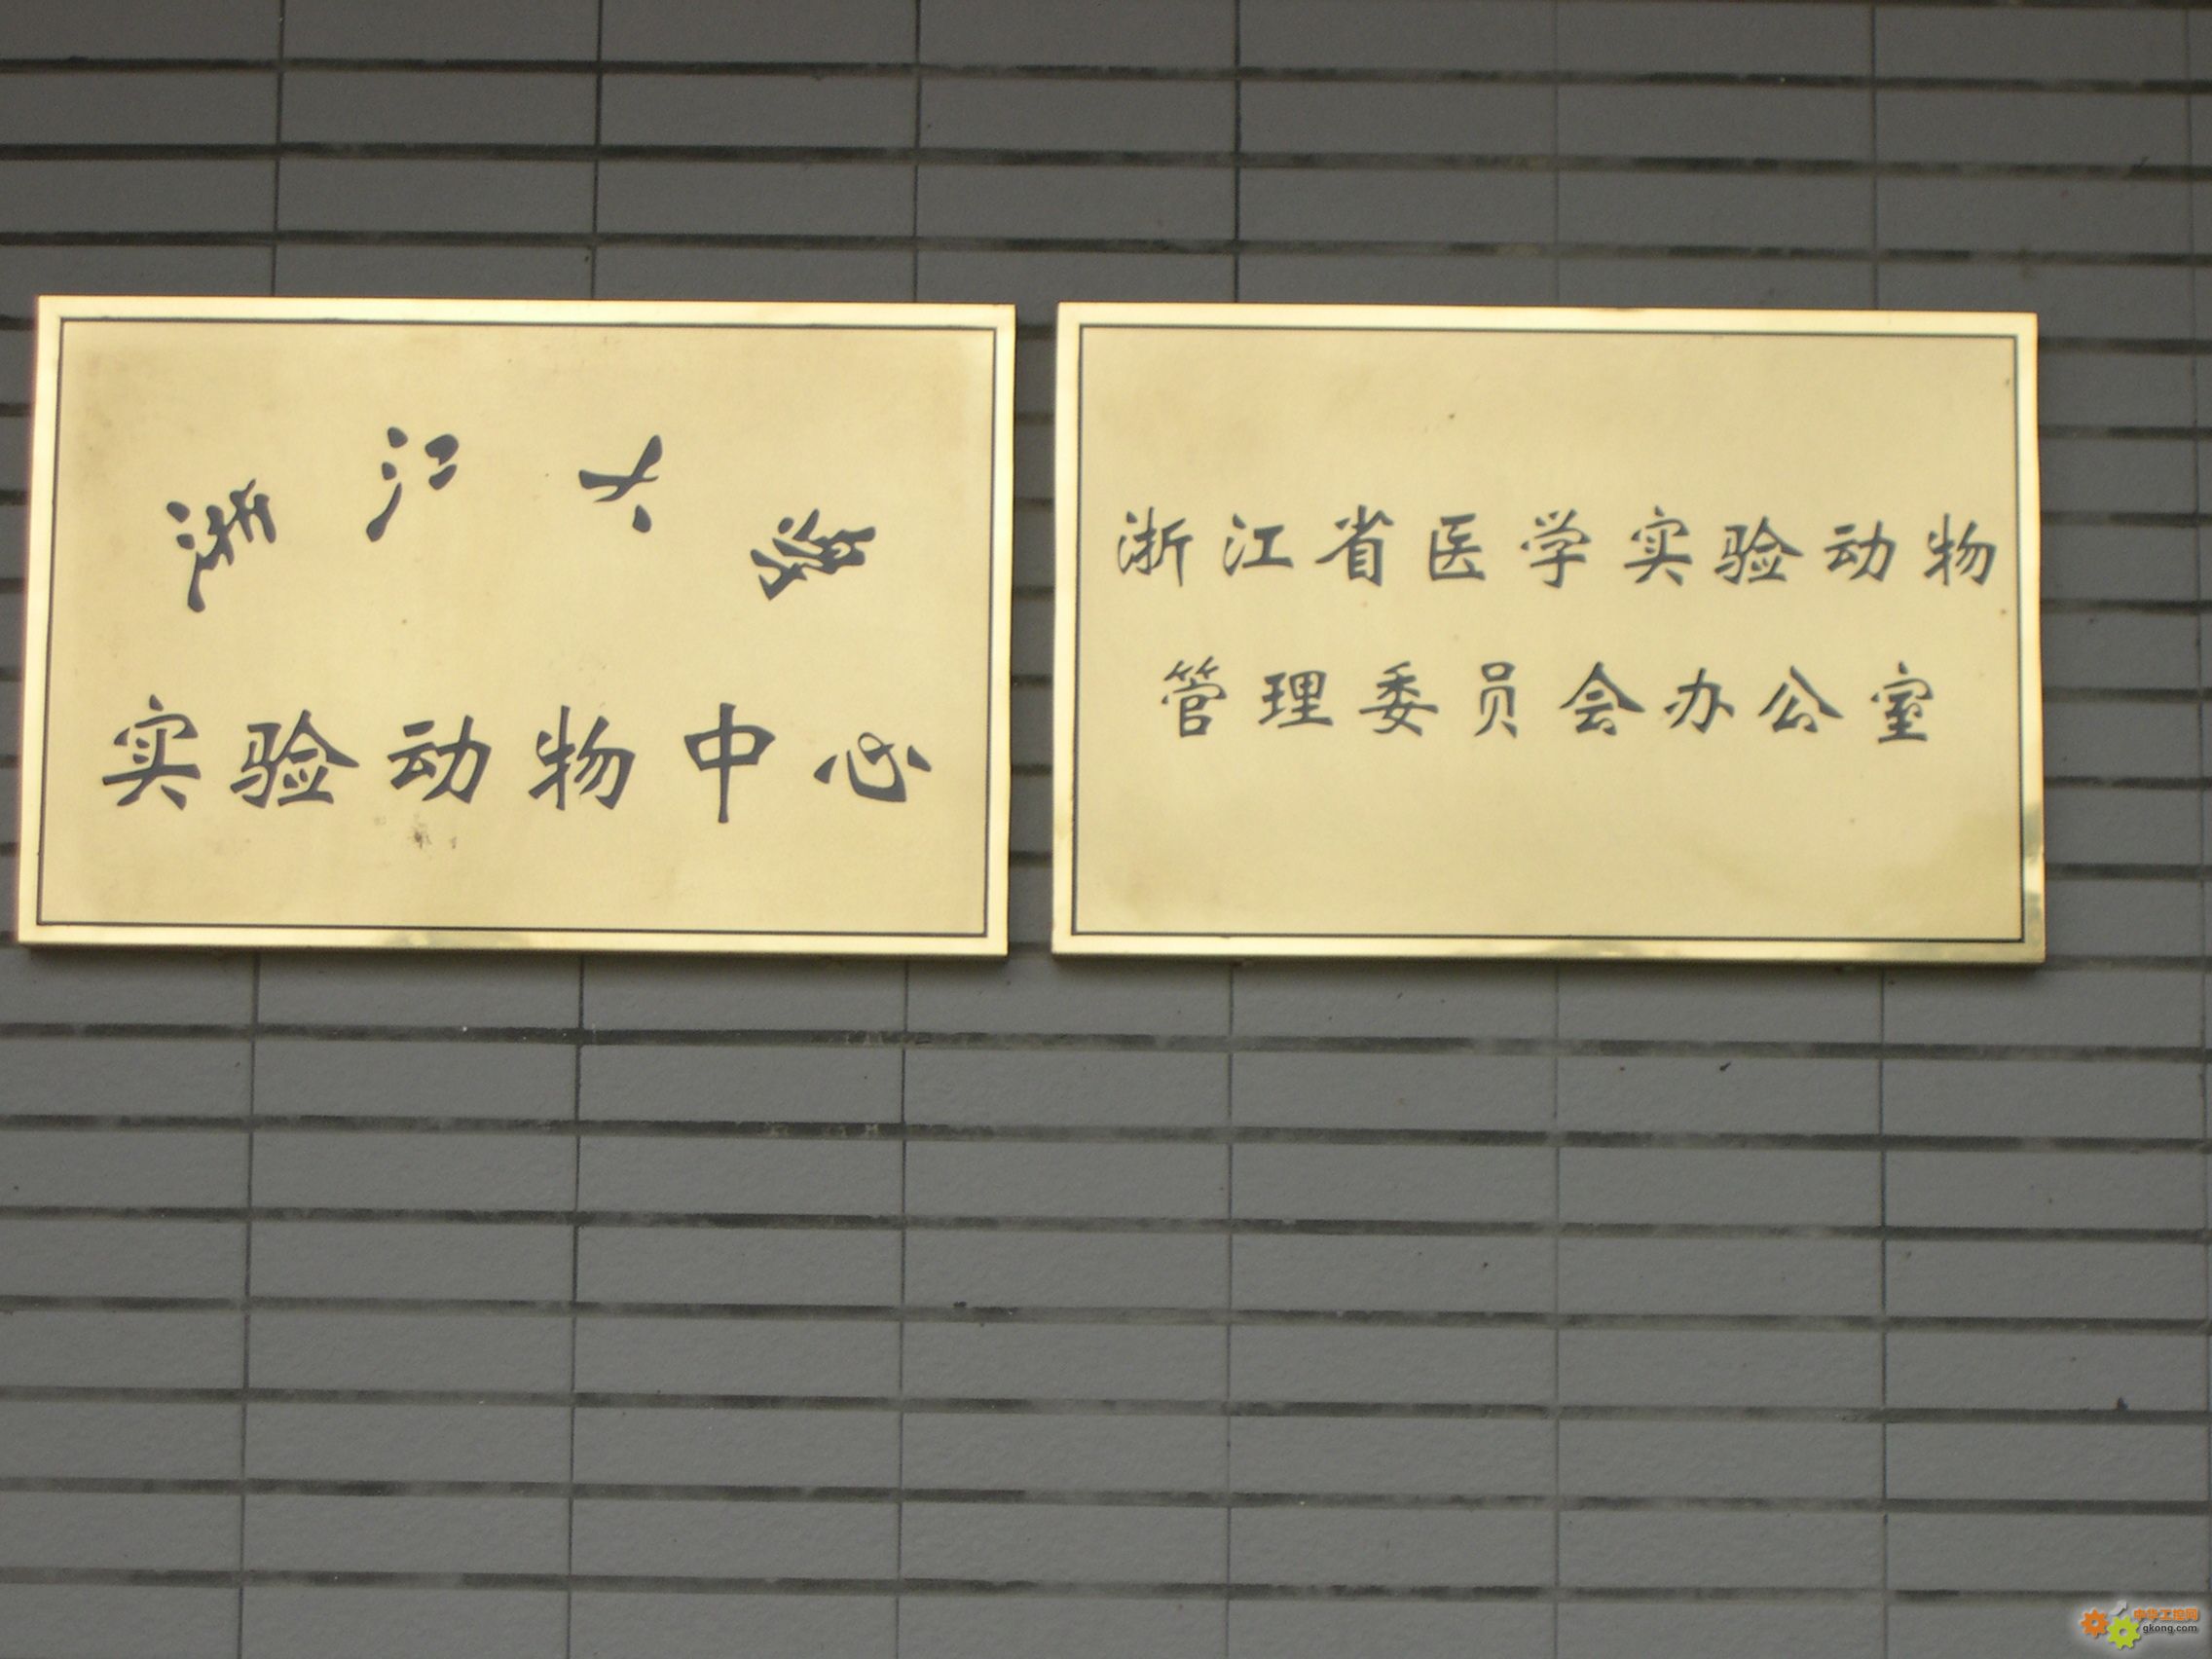 浙江大学
实验动物中心
浙江省医学实验动物
管理委员会办公室
中华工控网
gkong.com